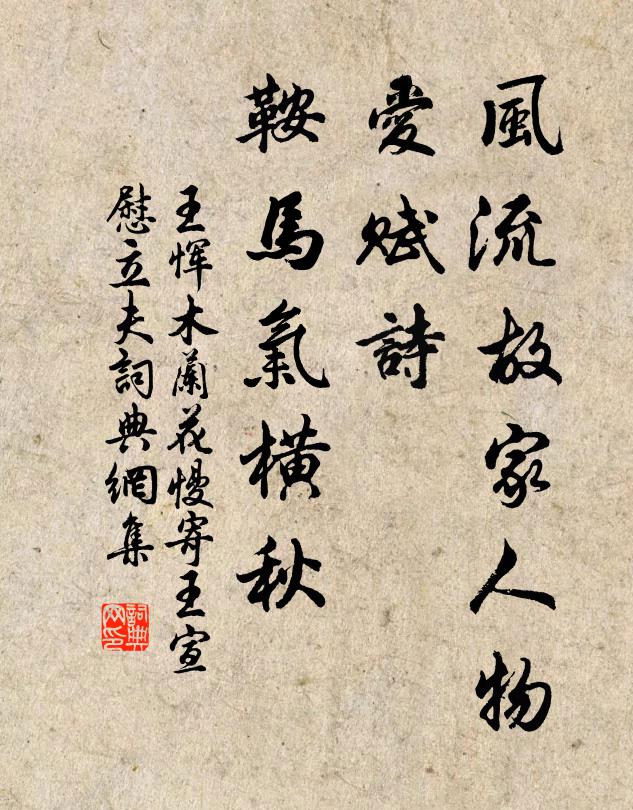 風流故家人物
愛賦詩
鞍馬氣橫秋
王惲木蘭花慢寄王宣
慰立夫詞典網集
詞典網印